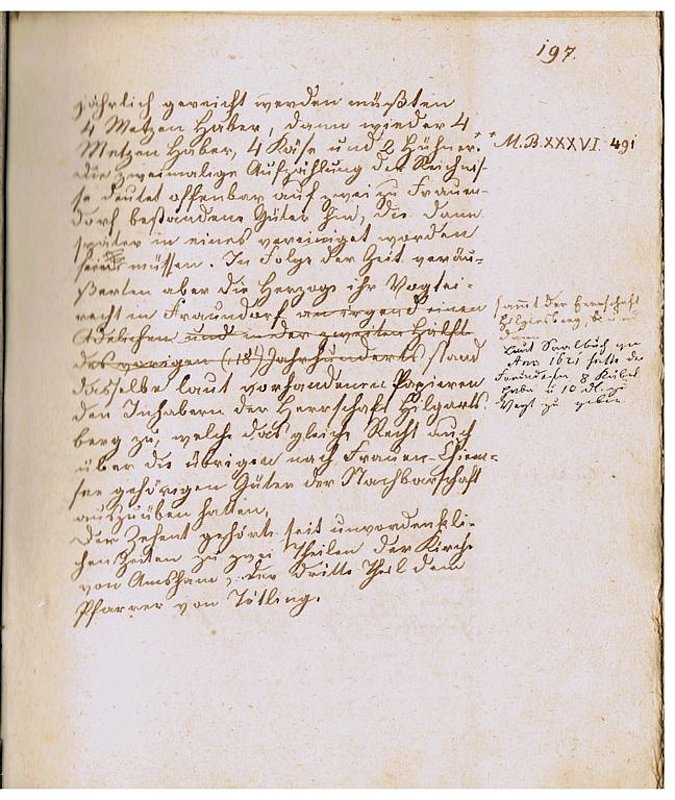 197.
jährlich gereicht werden müßten
4 Metzen Haber, dann wieder 4
Metzen Haber, 4 Käse und 2 Hühner.*
die zweimalige Aufzählung der Reichnis-
se deutet offenbar auf zwei zu Frauen-
dorf bestandene Güter hin, die dann
später in eines vereiniget worden
sein müssen. In Folge der Zeit veräu-
ßerten aber die Herzoge ihr Vogtei-
recht in Fraundorf an irgend einen
Adelichen und in der zweiten Hälfte
des vorigen (: 18t:) Jahrhunderts stand
dasselbe laut vorhandenen Papieren
den Inhabern der Herrschaft Hilgarts-
berg zu, welche das gleiche Recht auch
über die übrigen nach Frauen-Chiem-
see gehörigen Güter der Nachbarschaft
auszuüben hatten.
Der Zehent gehörte seit unvordenkli-
chen Zeiten zu zwei Theilen der Kirche
von Amsham, der dritte Theil dem
Pfarrer von Tötling.
* M.B. XXXVI. 491
samt der Herrschaft
dann
laut Saalbuch von
Ano 1621 hatte der
8 Kübel
Haber u 10 dl.
Vogt zu geben